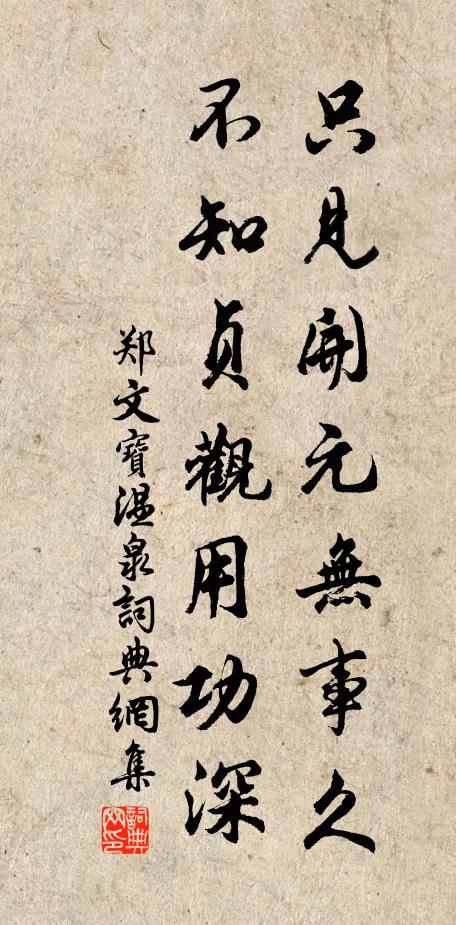 只見開元無事久
不知貞觀用功深
郑文寶溫泉詞典網集
詞典网印